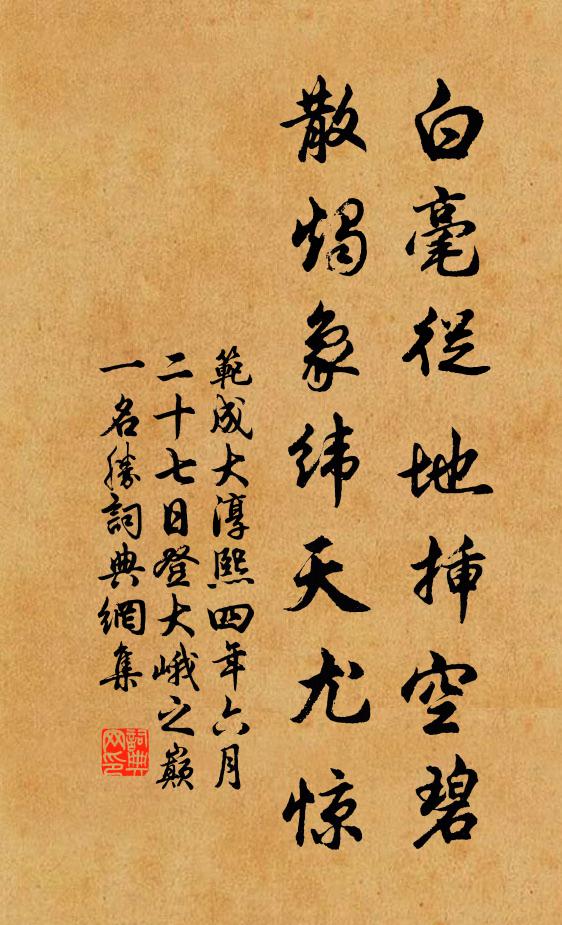 白毫從地揷空碧
散燭象緯天尤惊
範成大淳熙四年六月
二十七日登大峨之巔
一名勝詞典網集
詞典网印